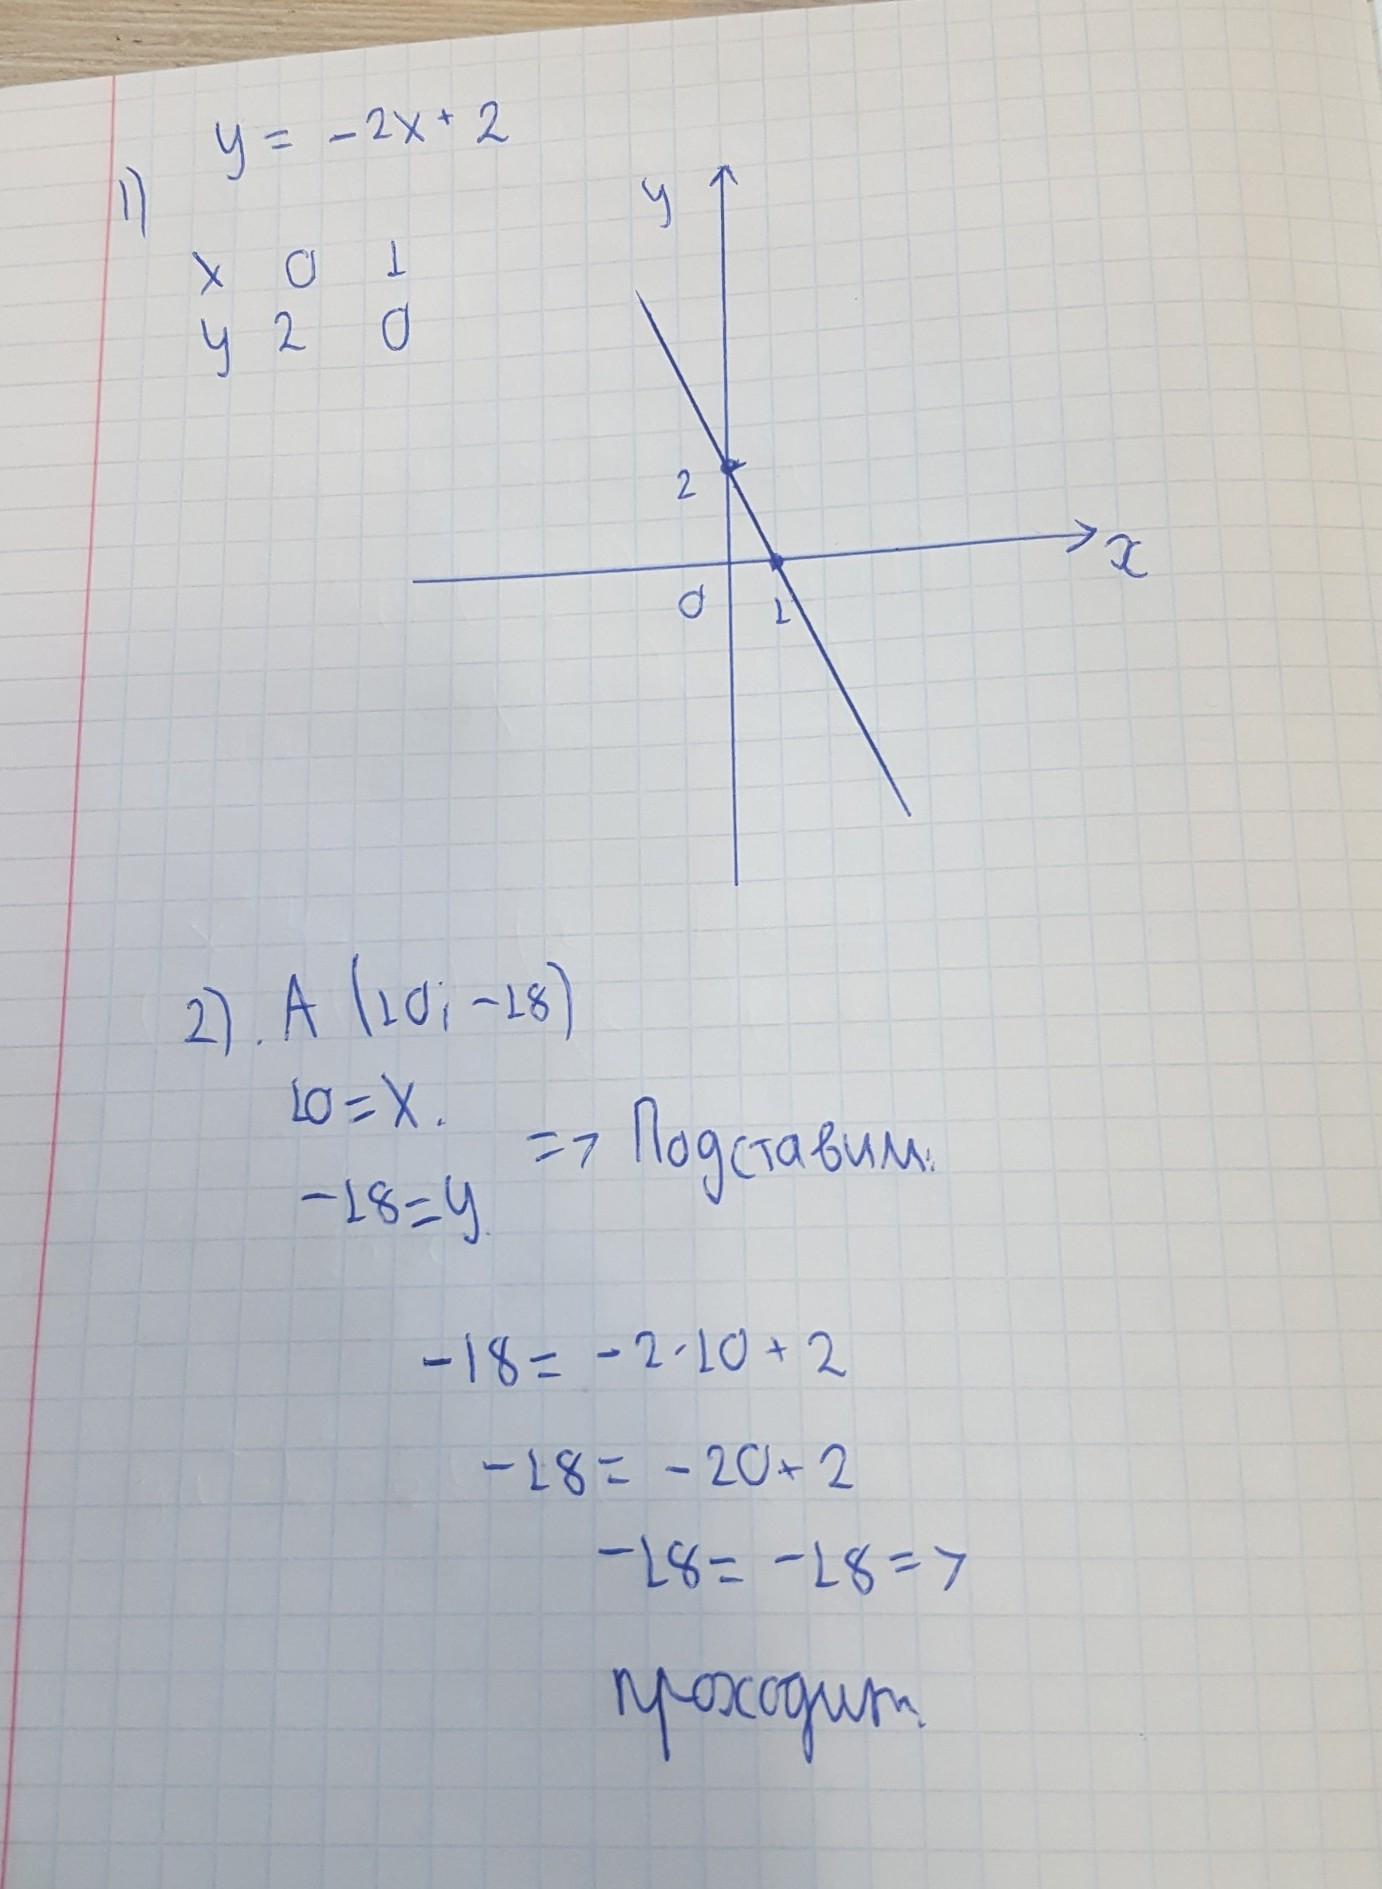 y = -2x + 2
1)
x 0 1
y 2 0
y
2
x
0 1
2). A (10; -18)
10 = x.
=> Подставим:
-18 = y
-18 = -2·10 + 2
-18 = -20 + 2
-18 = -18 =>
проходит.